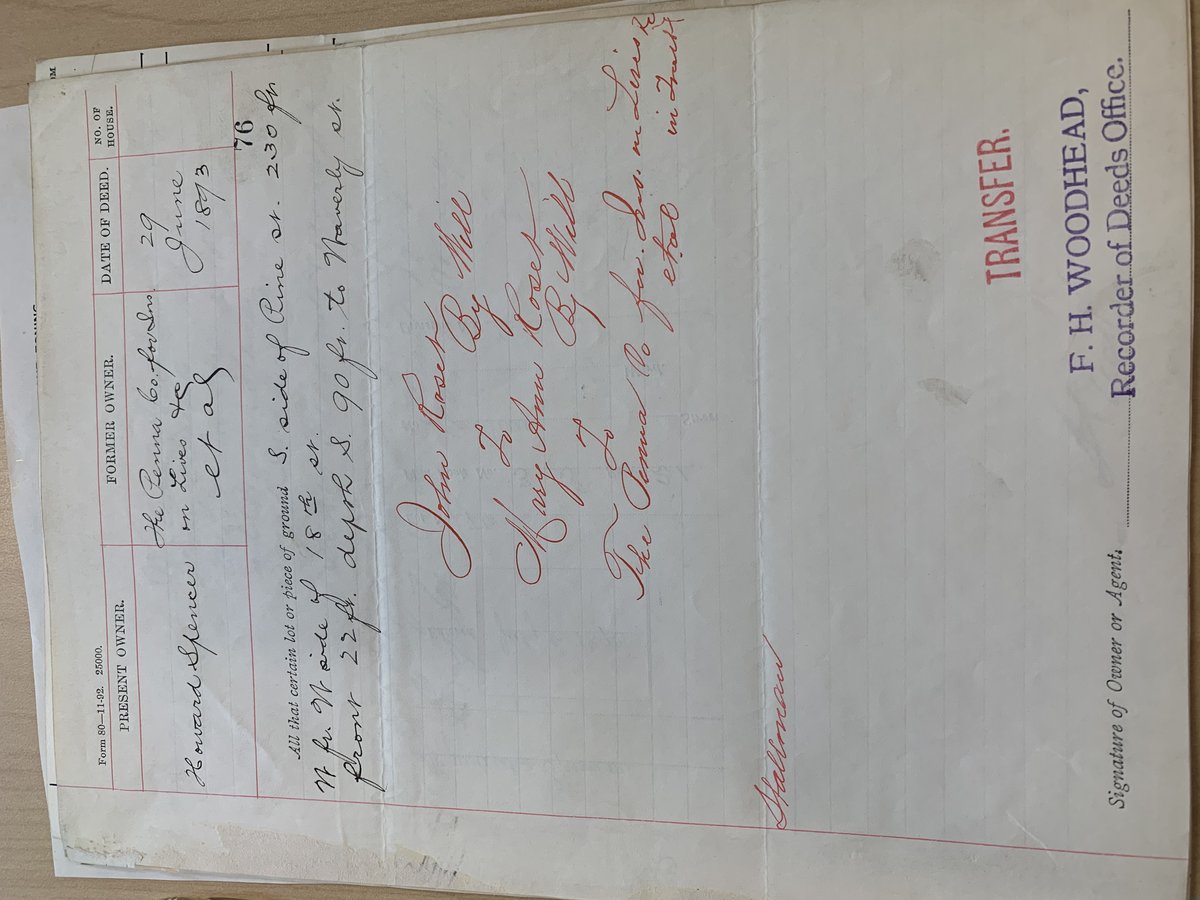 Form 80—11-92. 25000.
PRESENT OWNER. FORMER OWNER. DATE OF DEED. NO. OF HOUSE.
Howard Spencer
The Penna Co for Ins.
on Lives &c
et al
29
June
1893
76
All that certain lot or piece of ground S. side of Pine st. 230 ft
W fr. W side of 18th st.
front 22 ft. depth S. 90 ft. to Waverly st.
John Roset
By Will
To
Mary Ann Roset
By Will
To
The Penna Co for. Ins. on Lives &c
et al in Trust
Hallman
TRANSFER.
F. H. WOODHEAD,
Signature of Owner or Agent. Recorder of Deeds Office.